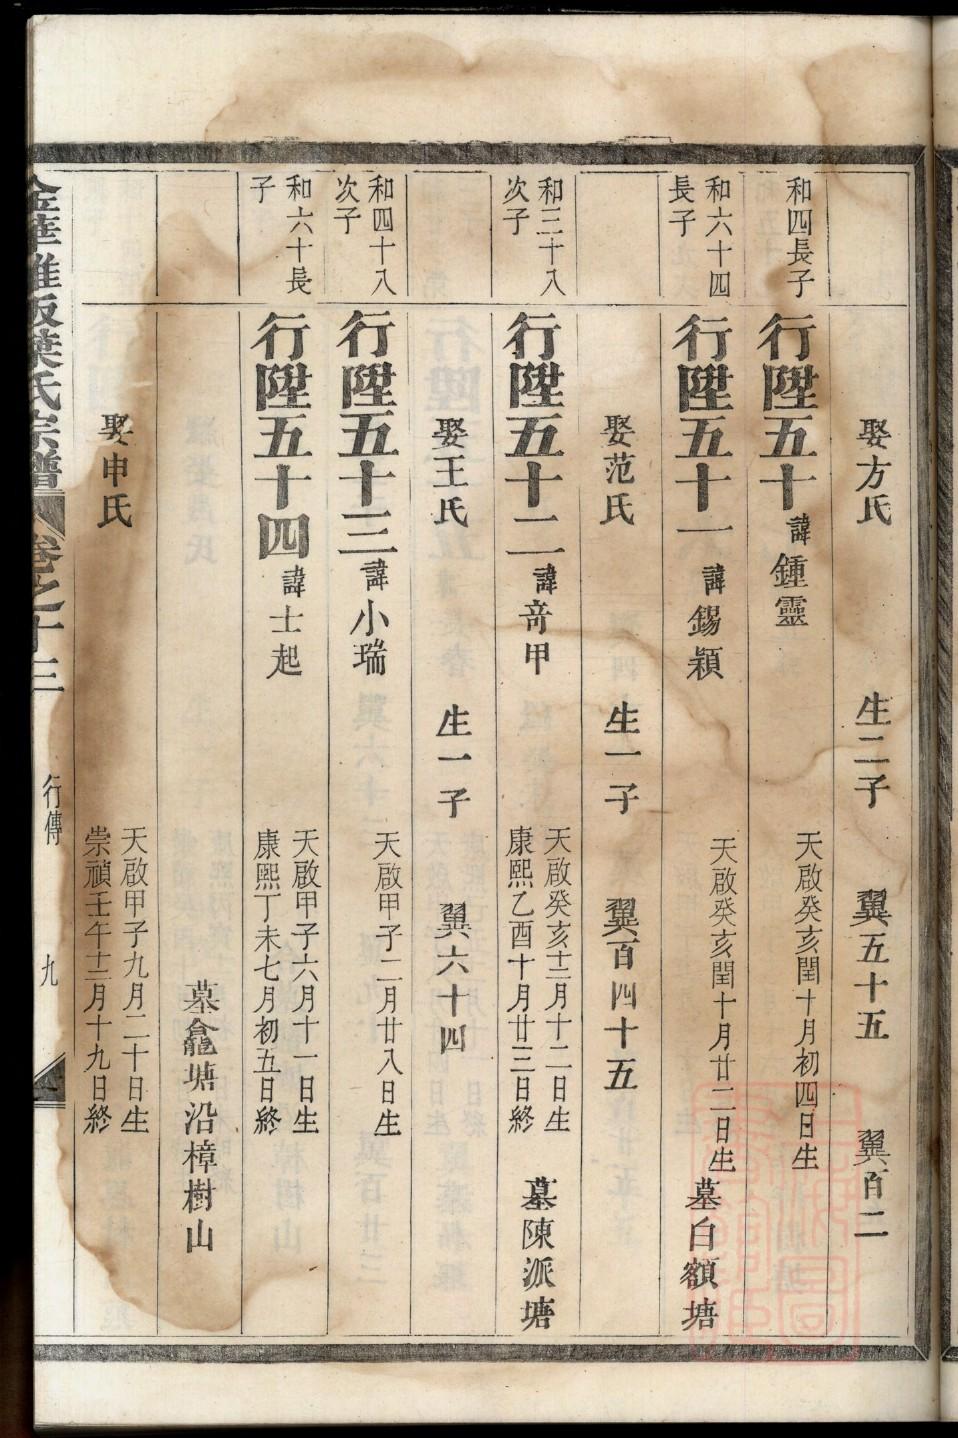 娶方氏 生二子 翼五十五 翼百二
和四長子 行陞五十 諱鍾靈 天啟癸亥閏十月初四日生
和六十四長子 行陞五十一 諱錫穎 天啟癸亥閏十月廿二日生 墓白額塘
娶范氏 生一子 翼百四十五
和三十八次子 行陞五十二 諱竒甲 天啟癸亥十二月十二日生 康熙乙酉十月廿三日終 墓陳派塘
娶王氏 生一子 翼六十四
和四十八次子 行陞五十三 諱小瑞 天啟甲子二月廿八日生
和六十長子 行陞五十四 諱士起 天啟甲子六月十一日生 康熙丁未七月初五日終
墓龕塘沿樟樹山
娶申氏 天啟甲子九月二十日生 崇禎壬午十二月十九日終
葉氏宗譜 卷之十三 行傳 九